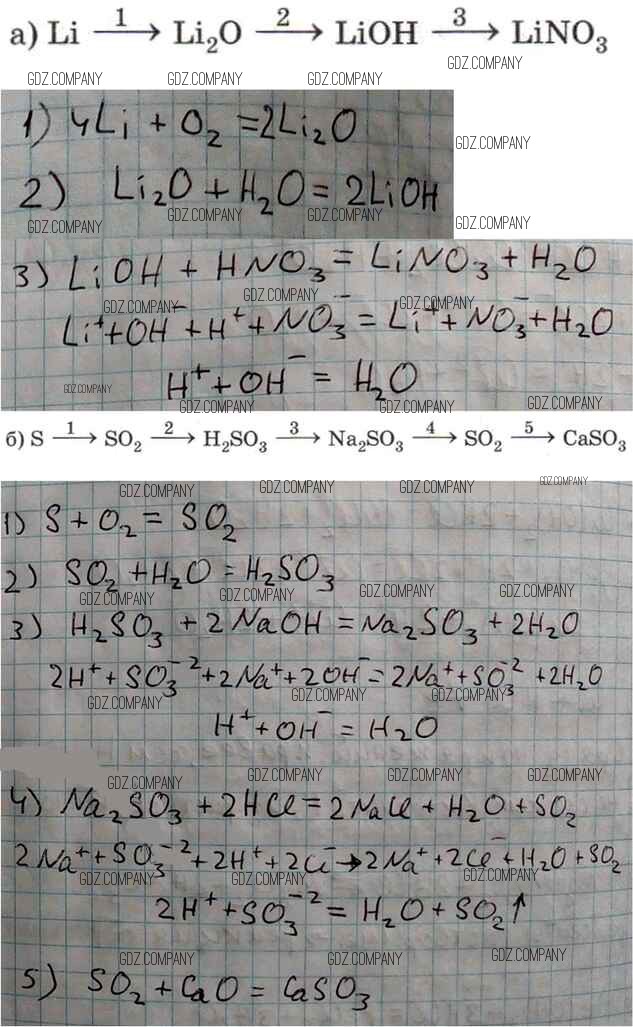 а) Li —1→ Li₂O —2→ LiOH —3→ LiNO₃
GDZ.COMPANY GDZ.COMPANY GDZ.COMPANY GDZ.COMPANY
1) 4Li + O₂ = 2Li₂O
GDZ.COMPANY
2) Li₂O + H₂O = 2LiOH
GDZ.COMPANY GDZ.COMPANY GDZ.COMPANY GDZ.COMPANY
3) LiOH + HNO₃ = LiNO₃ + H₂O
GDZ.COMPANY GDZ.COMPANY GDZ.COMPANY
Li⁺ + OH⁻ + H⁺ + NO₃⁻ = Li⁺ + NO₃⁻ + H₂O
H⁺ + OH⁻ = H₂O
GDZ.COMPANY GDZ.COMPANY GDZ.COMPANY GDZ.COMPANY
б) S —1→ SO₂ —2→ H₂SO₃ —3→ Na₂SO₃ —4→ SO₂ —5→ CaSO₃
GDZ.COMPANY GDZ.COMPANY GDZ.COMPANY GDZ.COMPANY
1) S + O₂ = SO₂
2) SO₂ + H₂O = H₂SO₃
GDZ.COMPANY GDZ.COMPANY GDZ.COMPANY GDZ.COMPANY
3) H₂SO₃ + 2NaOH = Na₂SO₃ + 2H₂O
2H⁺ + SO₃⁻² + 2Na⁺ + 2OH⁻ = 2Na⁺ + SO₃⁻² + 2H₂O
GDZ.COMPANY GDZ.COMPANY GDZ.COMPANY
H⁺ + OH⁻ = H₂O
GDZ.COMPANY GDZ.COMPANY GDZ.COMPANY GDZ.COMPANY
4) Na₂SO₃ + 2HCl = 2NaCl + H₂O + SO₂
2Na⁺ + SO₃⁻² + 2H⁺ + 2Cl⁻ → 2Na⁺ + 2Cl⁻ + H₂O + SO₂
GDZ.COMPANY GDZ.COMPANY GDZ.COMPANY
2H⁺ + SO₃⁻² = H₂O + SO₂↑
GDZ.COMPANY GDZ.COMPANY GDZ.COMPANY
5) SO₂ + CaO = CaSO₃